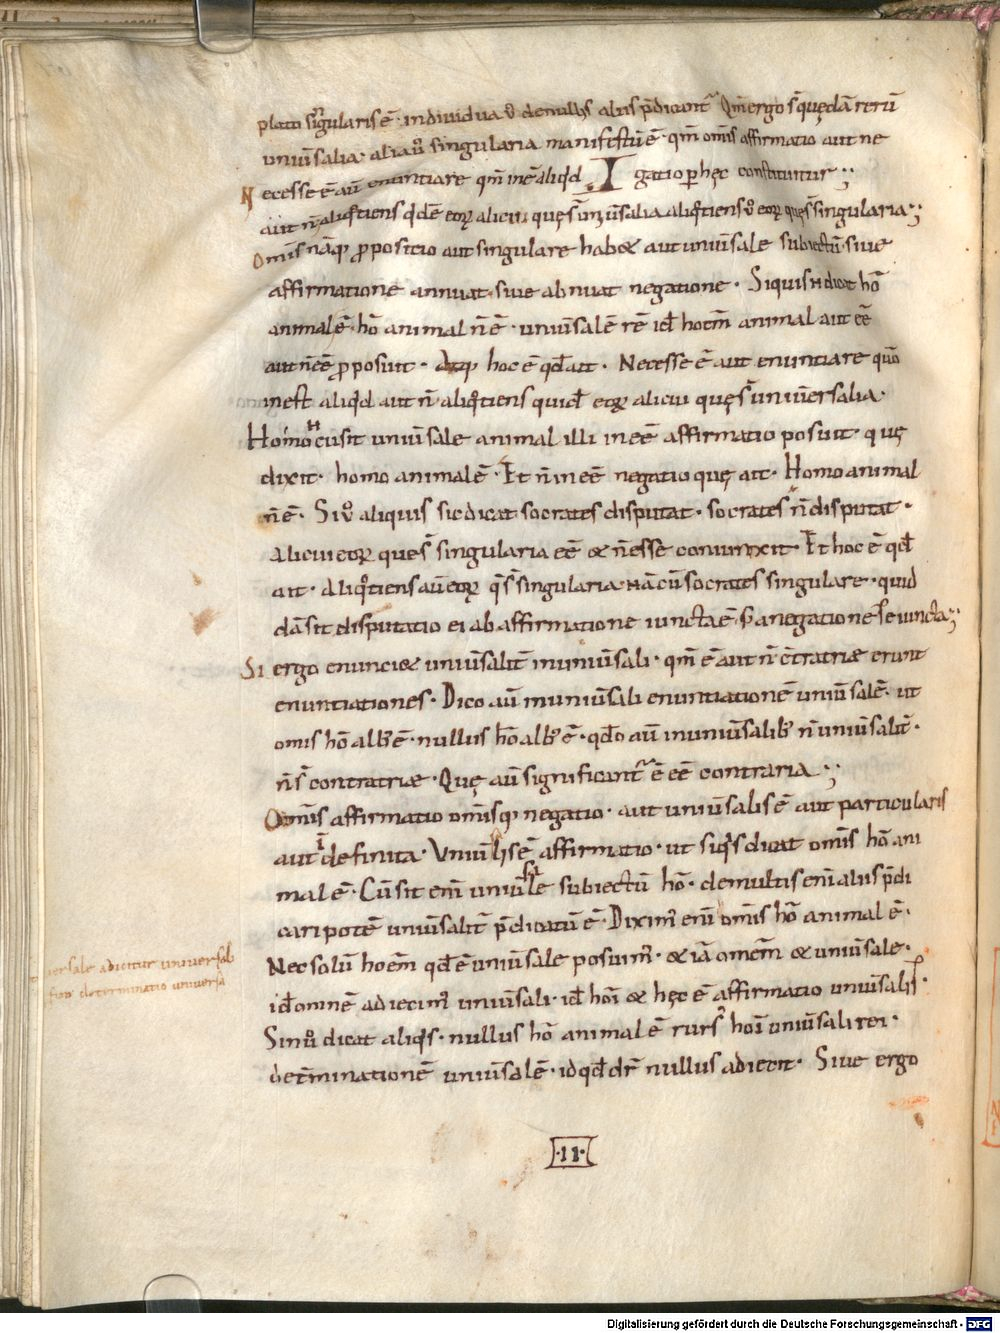 plato singularis ē· individua v̄ de multis aliis p̄dicant᷑ Qm̄ ergo s̄ quędā rerū
univ̄salia· alia v̄ singularia manifestū ē· qm̄ omīs affirmatio aut ne
Necesse ē aū enuntiare qm̄ inē aliqd I gatio ꝑ hęc constituitur·;
aut n̄ aliqtiens qdē eoꝝ alicui quę s̄ univ̄salia aliqtiens v̄ eoꝝ quę s̄ singularia·;
Omīs nāq; ꝓpositio aut singulare hab& aut univ̄sale subiectū· sive
affirmatione annuat· sive abnuat negatione· Si quis N dicat hō
animal ē· hō animal n̄ ē· univ̄salē rē id hoem̄ animal aut eē
aut n̄ eē ꝓposuit· atq; hoc ē qđ ait· Necesse ē aut enuntiare qm̄
inest aliqd aut n̄ aliqtiens quid eoꝝ alicui quę s̄ univ̄ersalia·
Homo N cu sit univ̄sale animal illi ineē affirmatio posuit· quę
dixit· homo animal ē· Et n̄ ineē negatio quę ait· Homo animal
n̄ ē· Si v̄ aliquis sic dicat socrates disputat· socrates n̄ disputat·
Alicui eoꝝ que s̄ singularia eē & n̄ esse coniunxit· Et hoc ē qđ
ait· Aliqtiens aū eoꝝ q̄ s̄ singularia· NĀ cū socrates singulare· quid
dā sit disputatio ei ab affirmatione iuncta ē s; a negatione seiuncta·;
Si ergo enunci& univ̄salit̄ in univ̄sali· qm̄ ē aut n̄ c̄trariæ erunt
enuntiationes· Dico aū in univ̄sali enuntiationē univ̄salē· ut
omīs hō alb; ē· nullus hō alb; ē· qđo aū in univ̄salib; n̄ univ̄salit̄·
n̄ s̄ contrariæ· Quę aū significant᷑ ē eē contraria·;
Omīs affirmatio omīsq; negatio· aut univ̄salis ē aut particularis
aut īdefinita· Univ̄lis ē affirmatio· ut siqs dicat omīs hō ani
mal ē· Cū sit enī univ̄le subiectū hō· de multis enī aliis p̄di
cari potē univ̄salit̄ p̄dicatū ē· Diximꝰ enī omīs hō animal ē·
Nec solū hoem̄ qđ ē univ̄sale posuimꝰ· & iā omem̄ & univ̄sale·
id omnē adiecimꝰ univ̄sali· id hoī & hęc ē affirmatio univ̄salis
Sin v̄ dicat aliqs· nullus hō animal ē rurs; hoī univ̄sali rei·
det̄minationē univ̄salē· id qđ dr̄ nullus adiecit· Sive ergo
ersale adicitur universali
determinatio universa
·II·
Digitalisierung gefördert durch die Deutsche Forschungsgemeinschaft - DFG